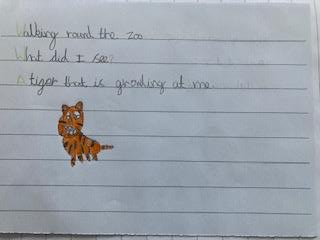 Walking round the zoo
What did I see?
A tiger that is growling at me.